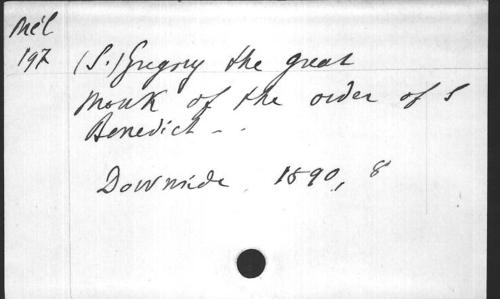 Mél
197
(S.) Gregory the great
monk of the order of S
Benedict - .
Downside, 1890, 8°